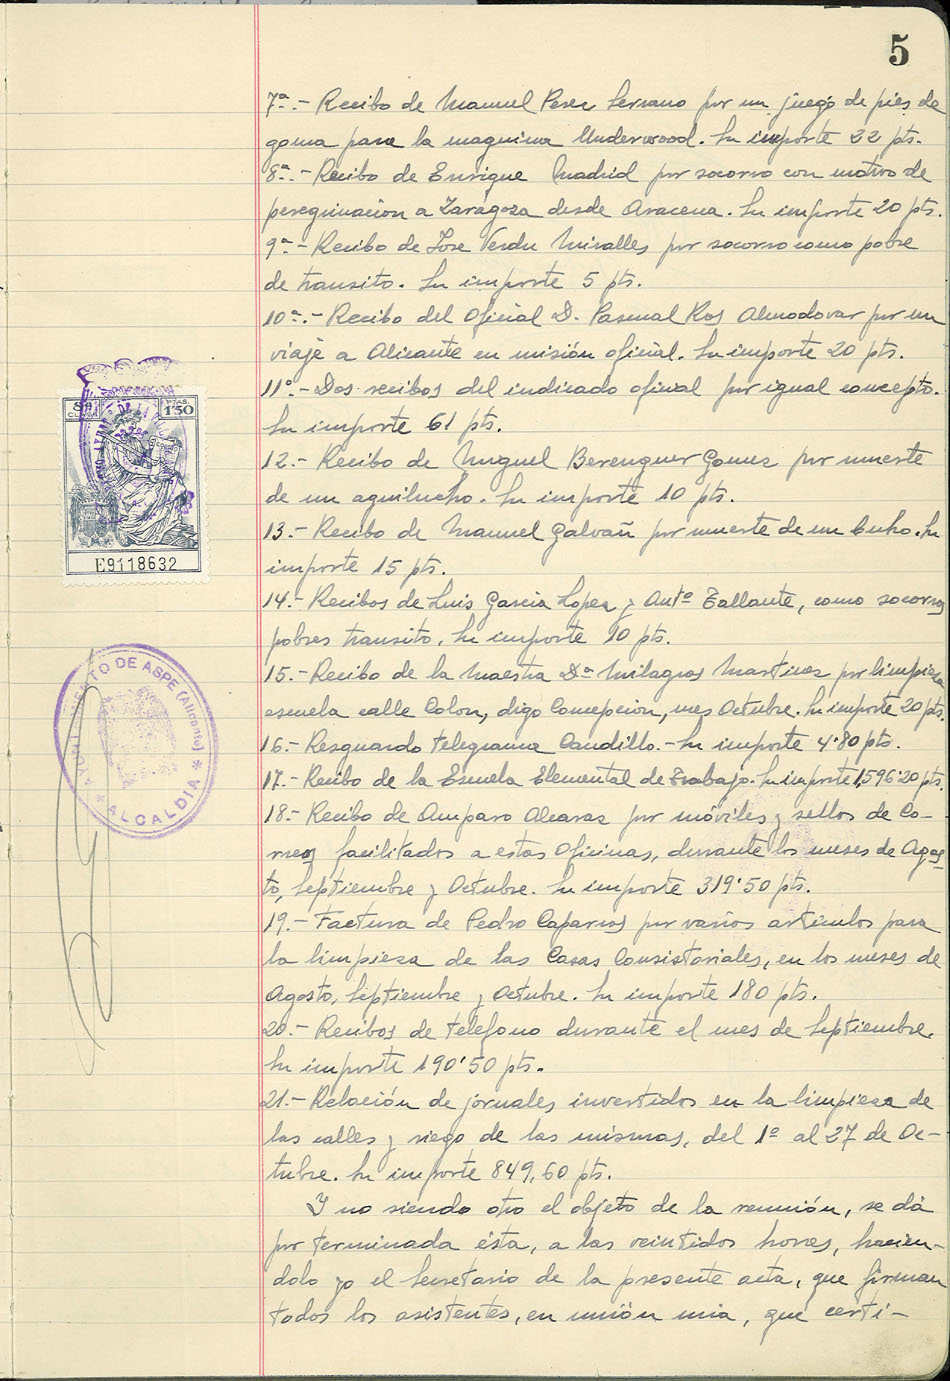 5
7ª.- Recibo de Manuel Perez Serrano por un juego de pies de
goma para la maquina Underwood. Su importe 22 pts.
8ª.- Recibo de Enrique Madrid por socorro con motivo de
peregrinacion a Zaragoza desde Aracena. Su importe 20 pts.
9ª.- Recibo de Jose Verdu Miralles por socorro como pobre
de transito. Su importe 5 pts.
10ª.- Recibo del oficial D. Pascual Ros Almodovar por un
viaje a Alicante en misión oficial. Su importe 20 pts.
11ª.- Dos recibos del indicado oficial por igual concepto.
Su importe 61 pts.
12.- Recibo de Miguel Berenguer Gomez por muerte
de un aguilucho. Su importe 10 pts.
13.- Recibo de Manuel Galvañ por muerte de un buho. Su
importe 15 pts.
14.- Recibos de Luis Garcia Lopez y Antº Tallante, como socorros
pobres transito. Su importe 10 pts.
15.- Recibo de la Maestra Dª Milagros Martinez por limpieza
escuela calle Colon, digo Concepcion, mes Octubre. Su importe 20 pts.
16.- Resguardo telegrama Caudillo.- Su importe 4'80 pts.
17.- Recibo de la Escuela Elemental de Trabajo. Su importe 1,596'20 pts.
18.- Recibo de Amparo Alcaraz por móviles y sellos de Co-
rreos facilitados a estas Oficinas, durante los meses de Agos-
to, Septiembre y Octubre. Su importe 319'50 pts.
19.- Factura de Pedro Caparros por varios articulos para
la limpieza de las Casas Consistoriales, en los meses de
Agosto, Septiembre y Octubre. Su importe 180 pts.
20.- Recibos de telefono durante el mes de Septiembre.
Su importe 190'50 pts.
21.- Relación de jornales invertidos en la limpieza de
las calles y riego de las mismas, del 1º al 27 de Oc-
tubre. Su importe 849,60 pts.
Y no siendo otro el objeto de la reunión, se dá
por terminada ésta, a las veintidos horas, hacien-
dolo yo el Secretario de la presente acta, que firman
todos los asistentes, en unión mia, que certi-
8ª
CLASE
PTAS.
1'50
E9118632
AYUNTAMIENTO DE ASPE (Alicante)
* ALCALDIA *